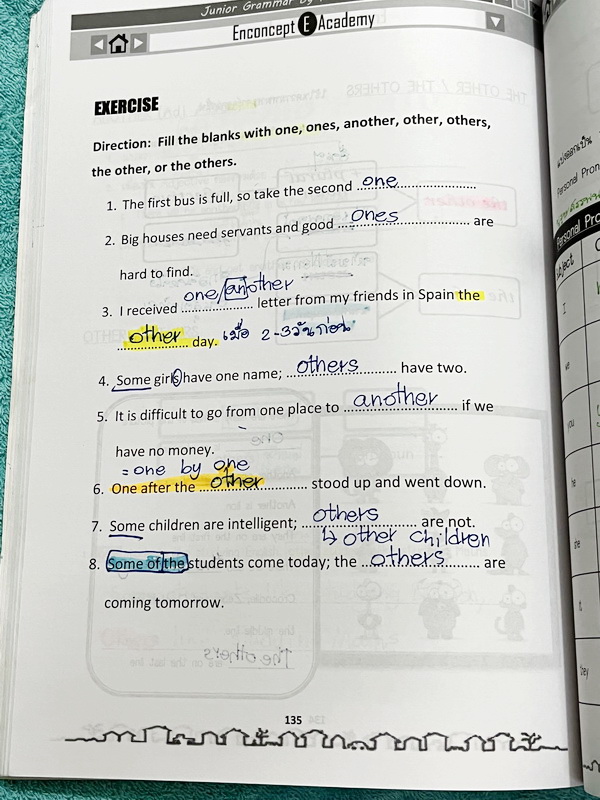 Junior Grammar By
Enconcept E Academy
EXERCISE
Direction: Fill the blanks with one, ones, another, other, others,
the other, or the others.
1. The first bus is full, so take the second one
2. Big houses need servants and good ones are
hard to find.
one/another
3. I received letter from my friends in Spain the
other day. เมื่อ 2-3วันก่อน
4. Some girls have one name; others have two.
5. It is difficult to go from one place to another if we
have no money.
= one by one
6. One after the other stood up and went down.
7. Some children are intelligent; others are not.
↳ other children
8. Some of the students come today; the others are
coming tomorrow.
135
Personal Pron
Personal Pro
I
we
you
he
she
it
they